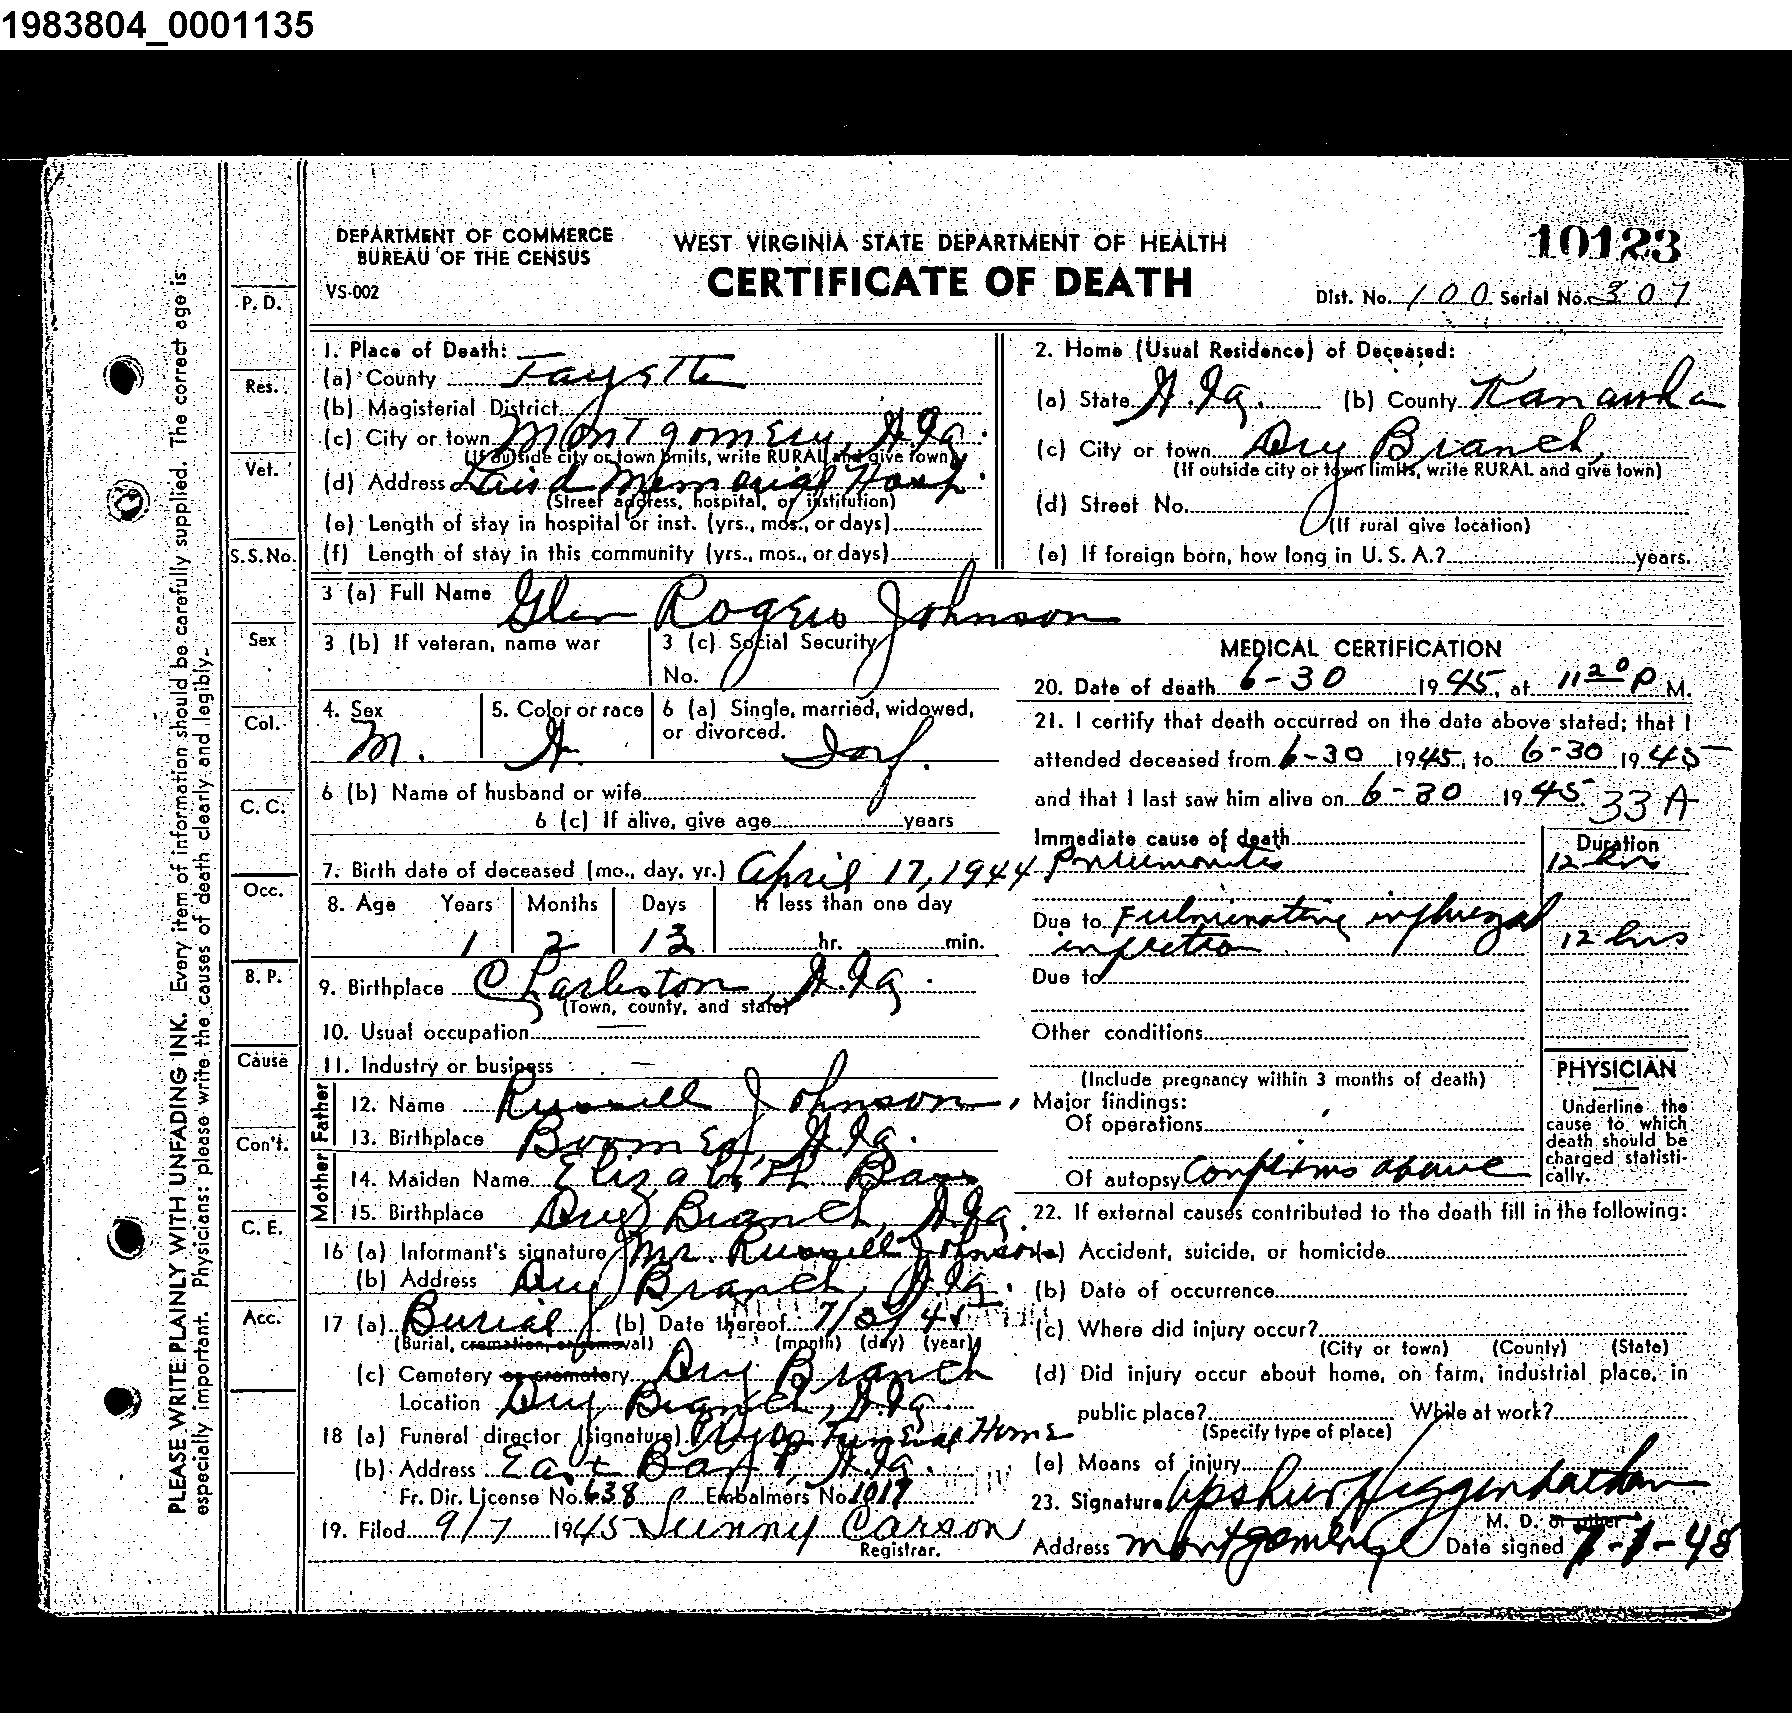 1983804_0001135
DEPARTMENT OF COMMERCE
BUREAU OF THE CENSUS
VS-002
WEST VIRGINIA STATE DEPARTMENT OF HEALTH
CERTIFICATE OF DEATH
10123
Dist. No. 100 Serial No. 307
PLEASE WRITE PLAINLY WITH UNFADING INK. Every item of information should be carefully supplied. The correct age is
especially important. Physicians: please write the causes of death clearly and legibly.
P. D.
Res.
Vet.
S.S.No.
Sex
Col.
C. C.
Occ.
B. P.
Cause
Con't.
C. E.
Acc.
1. Place of Death:
(a) County Fayette
(b) Magisterial District
(c) City or town Montgomery, W.Va.
(If outside city or town limits, write RURAL and give town)
(d) Address Laird Memorial Hosp.
(Street address, hospital, or institution)
(e) Length of stay in hospital or inst. (yrs., mos., or days)
(f) Length of stay in this community (yrs., mos., or days)
2. Home (Usual Residence) of Deceased:
(a) State W.Va. (b) County Kanawha
(c) City or town Dry Branch,
(If outside city or town limits, write RURAL and give town)
(d) Street No.
(If rural give location)
(e) If foreign born, how long in U. S. A.? years.
3 (a) Full Name Glen Rogers Johnson
3 (b) If veteran, name war
3 (c) Social Security
No.
4. Sex M.
5. Color or race W.
6 (a) Single, married, widowed,
or divorced. Inf.
6 (b) Name of husband or wife
6 (c) If alive, give age years
7. Birth date of deceased (mo., day, yr.) April 17, 1944
8. Age Years Months Days If less than one day
1 2 13 hr. min.
9. Birthplace Charleston, W.Va.
(Town, county, and state)
10. Usual occupation —
11. Industry or business —
Father
12. Name Russell Johnson,
13. Birthplace Boomer, W.Va.
Mother
14. Maiden Name Elizabeth
15. Birthplace Dry Branch, W.Va.
16 (a) Informant's signature Mr. Russell Johnson
(b) Address Dry Branch, W.Va.
17 (a) Burial (b) Date thereof 7/3/45
(Burial, cremation, or removal) (month) (day) (year)
(c) Cemetery or crematory Dry Branch
Location Dry Branch, W.Va.
18 (a) Funeral director (signature) Funeral Home
(b) Address East Bank, W.Va.
Fr. Dir. License No. 638 Embalmers No. 1017
19. Filed 9/7 1945 Sunny Carson
Registrar.
MEDICAL CERTIFICATION
20. Date of death 6-30 1945, at 11:20 P M.
21. I certify that death occurred on the date above stated; that I
attended deceased from 6-30 1945, to 6-30 1945
and that I last saw him alive on 6-30 1945 33 A
Immediate cause of death Duration
Pneumonitis 12 hrs
Due to Fulminating influenzal
infection 12 hrs
Due to
Other conditions
(Include pregnancy within 3 months of death)
Major findings:
Of operations
Of autopsy confirms above
PHYSICIAN
Underline the
cause to which
death should be
charged statisti-
cally.
22. If external causes contributed to the death fill in the following:
(a) Accident, suicide, or homicide
(b) Date of occurrence
(c) Where did injury occur?
(City or town) (County) (State)
(d) Did injury occur about home, on farm, industrial place, in
public place? While at work?
(Specify type of place)
(e) Means of injury
23. Signature Upshur Higginbotham
M. D. or other
Address Montgomery Date signed 7-1-45